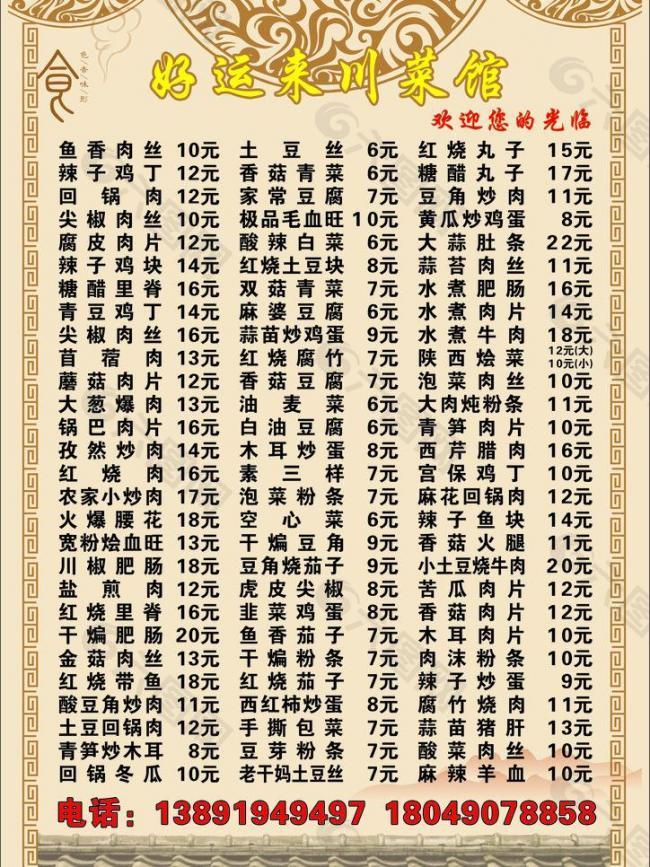 食
色/香/味/形
好运来川菜馆
欢迎您的光临
鱼香肉丝 10元 土豆丝 6元 红烧丸子 15元
辣子鸡丁 12元 香菇青菜 6元 糖醋丸子 17元
回锅肉 12元 家常豆腐 7元 豆角炒肉 11元
尖椒肉丝 10元 极品毛血旺 10元 黄瓜炒鸡蛋 8元
腐皮肉片 12元 酸辣白菜 6元 大蒜肚条 22元
辣子鸡块 14元 红烧土豆块 8元 蒜苔肉丝 11元
糖醋里脊 16元 双菇青菜 7元 水煮肥肠 16元
青豆鸡丁 14元 麻婆豆腐 6元 水煮肉片 14元
尖椒肉丝 16元 蒜苗炒鸡蛋 9元 水煮牛肉 18元
苜蓿肉 13元 红烧腐竹 7元 陕西烩菜 12元(大) 10元(小)
蘑菇肉片 12元 香菇豆腐 7元 泡菜肉丝 10元
大葱爆肉 13元 油麦菜 6元 大肉炖粉条 11元
锅巴肉片 16元 白油豆腐 6元 青笋肉片 10元
孜然炒肉 14元 木耳炒蛋 8元 西芹腊肉 16元
红烧肉 16元 素三样 7元 宫保鸡丁 10元
农家小炒肉 17元 泡菜粉条 7元 麻花回锅肉 12元
火爆腰花 18元 空心菜 6元 辣子鱼块 14元
宽粉烩血旺 13元 干煸豆角 9元 香菇火腿 11元
川椒肥肠 18元 豆角烧茄子 9元 小土豆烧牛肉 20元
盐煎肉 12元 虎皮尖椒 8元 苦瓜肉片 12元
红烧里脊 16元 韭菜鸡蛋 8元 香菇肉片 12元
干煸肥肠 20元 鱼香茄子 7元 木耳肉片 10元
金菇肉丝 13元 干煸粉条 7元 肉沫粉条 10元
红烧带鱼 18元 红烧茄子 7元 辣子炒蛋 9元
酸豆角炒肉 11元 西红柿炒蛋 8元 腐竹烧肉 11元
土豆回锅肉 12元 手撕包菜 7元 蒜苗猪肝 13元
青笋炒木耳 8元 豆芽粉条 7元 酸菜肉丝 10元
回锅冬瓜 10元 老干妈土豆丝 7元 麻辣羊血 10元
电话：13891949497 18049078858